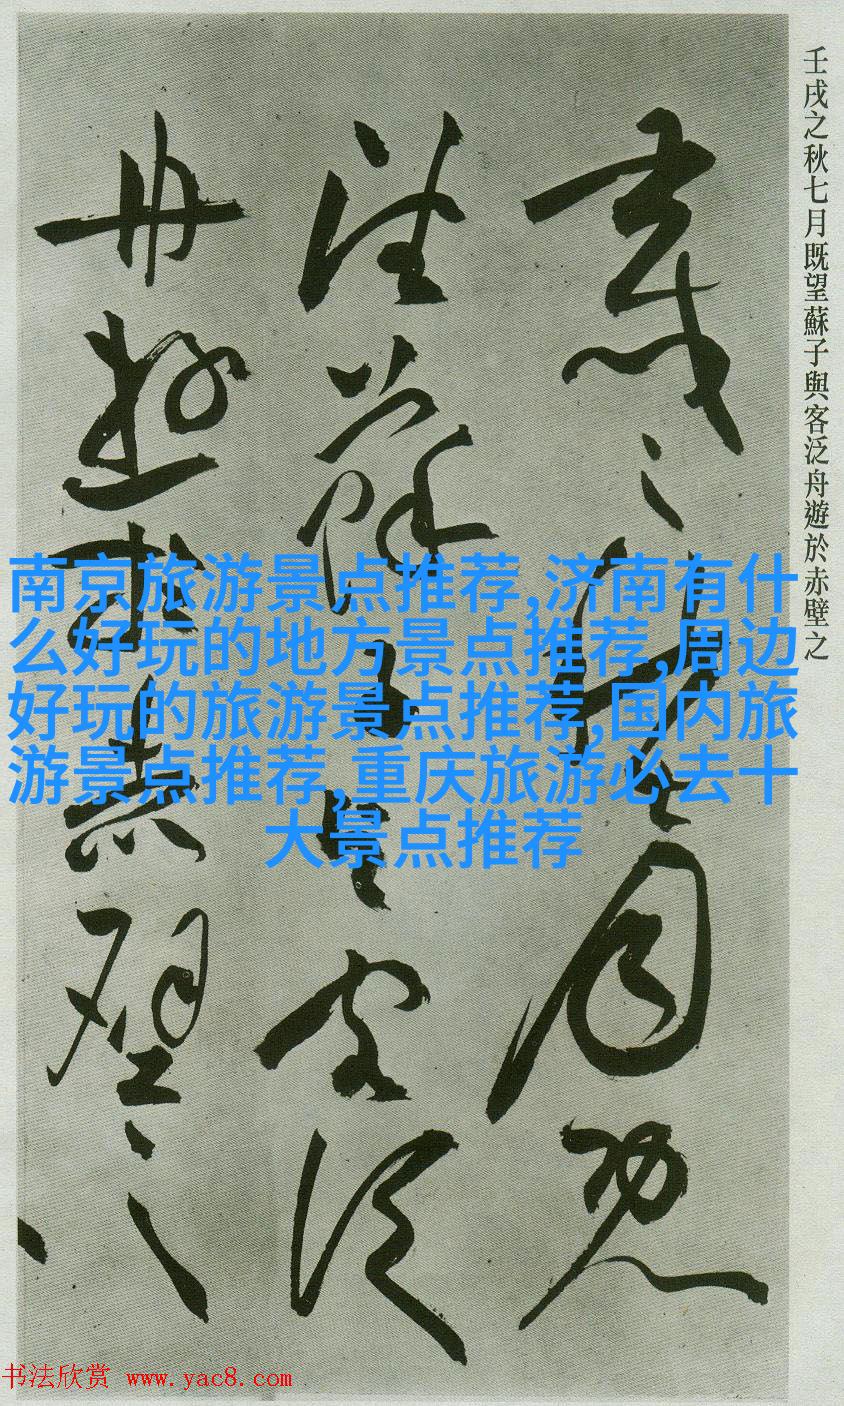 壬戌之秋七月既望蘇子與客泛舟遊於赤壁之
壬戌之秋七月既
望蘇子與客泛
舟遊於赤壁之
南京旅游景点推荐,济南有什
么好玩的地方景点推荐,周边
好玩的旅游景点推荐,国内旅
游景点推荐,重庆旅游必去十
大景点推荐
书法欣赏 www.yac8.com